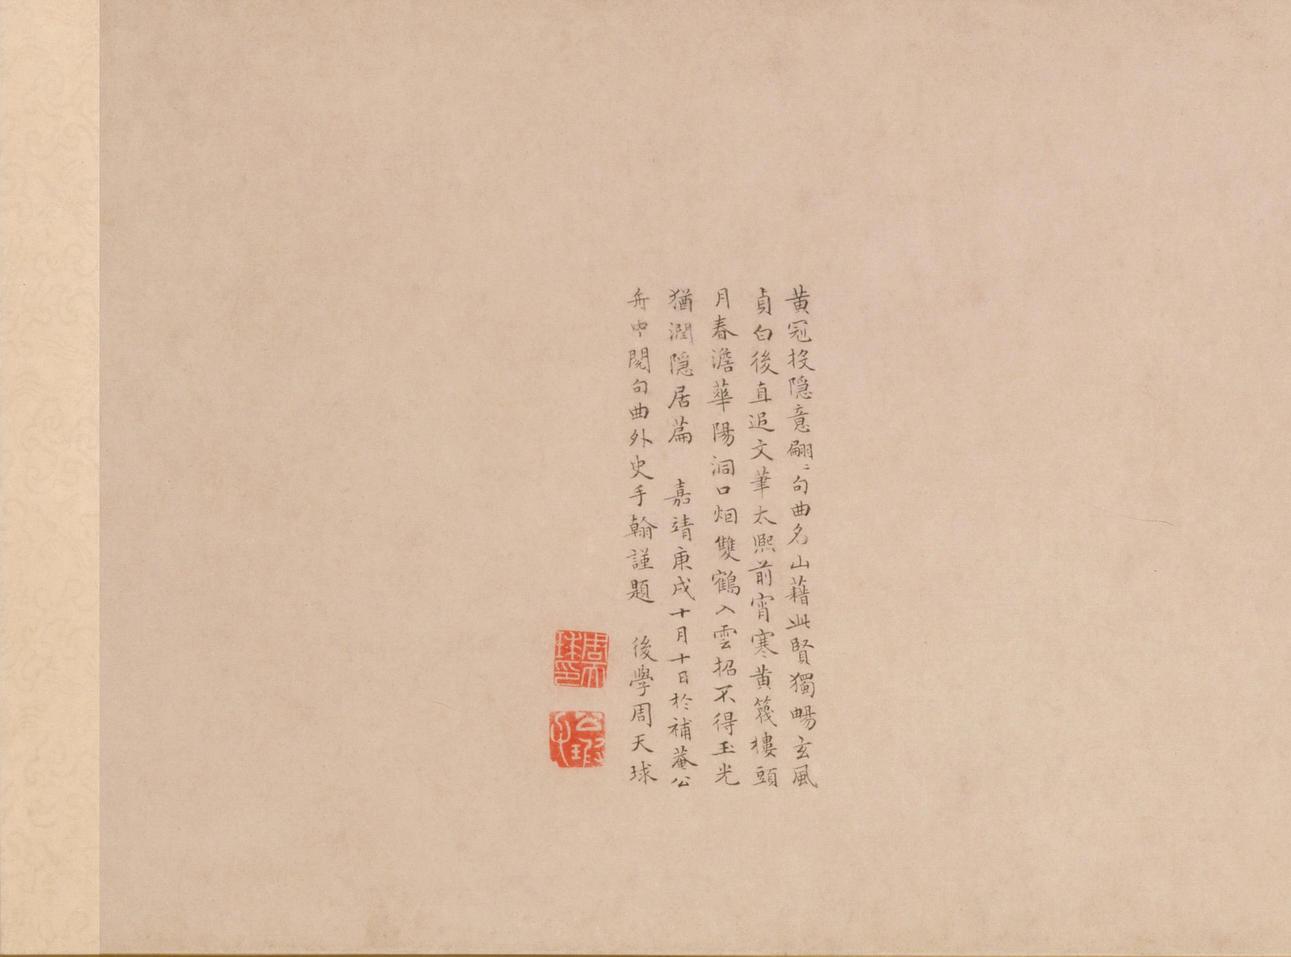 黄冠投隐意翩〻句曲名山藉此賢獨暢玄風
貞白後直追文華太熙前宵寒黄篾樓頭
月春澹華陽洞口烟雙鶴入雲招不得玉光
猶潤隠居篇 嘉靖庚戌十月十日於補菴公
舟中閱句曲外史手翰謹題 後學周天球
周天球印
公瑕